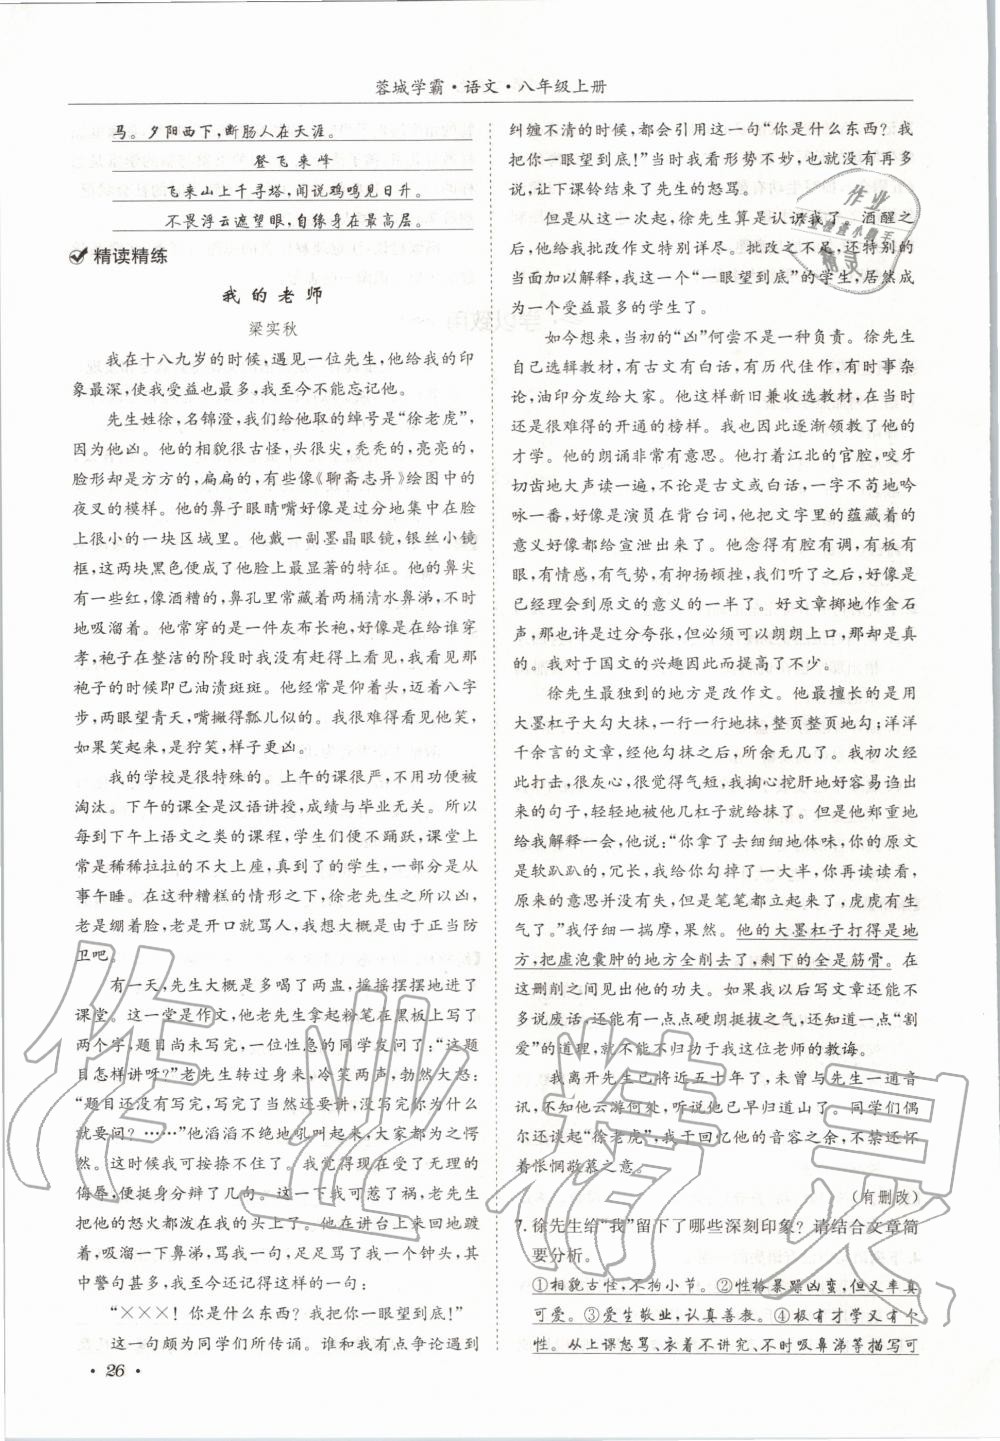 蓉城学霸·语文·八年级上册
马。夕阳西下,断肠人在天涯。
登飞来峰
飞来山上千寻塔,闻说鸡鸣见日升。
不畏浮云遮望眼,自缘身在最高层。
精读精练
我的老师
梁实秋
我在十八九岁的时候,遇见一位先生,他给我的印
象最深,使我受益也最多,我至今不能忘记他。
先生姓徐,名锦澄,我们给他取的绰号是“徐老虎”,
因为他凶。他的相貌很古怪,头很尖,秃秃的,亮亮的,
脸形却是方方的,扁扁的,有些像《聊斋志异》绘图中的
夜叉的模样。他的鼻子眼睛嘴好像是过分地集中在脸
上很小的一块区域里。他戴一副墨晶眼镜,银丝小镜
框,这两块黑色便成了他脸上最显著的特征。他的鼻尖
有一些红,像酒糟的,鼻孔里常常藏着两桶清水鼻涕,不时
地吸溜着。他常穿的是一件灰布长袍,好像是在给谁穿
孝,袍子在整洁的阶段时我没有赶得上看见,我看见那
袍子的时候即已油渍斑斑。他经常是仰着头,迈着八字
步,两眼望青天,嘴撇得瓢儿似的。我很难得看见他笑,
如果笑起来,是狞笑,样子更凶。
我的学校是很特殊的。上午的课很严,不用功便被
淘汰。下午的课全是汉语讲授,成绩与毕业无关。所以
每到下午上语文之类的课程,学生们便不踊跃,课堂上
常是稀稀拉拉的不大上座,真到了的学生,一部分是从
事午睡。在这种糟糕的情形之下,徐老先生之所以凶,
老是绷着脸,老是开口就骂人,我想大概是由于正当防
卫吧。
有一天,先生大概是多喝了两盅,摇摇摆摆地进了
课堂。这一堂是作文,他老先生拿起粉笔在黑板上写了
两个字,题目尚未写完,一位性急的同学发问了:“这题
目怎样讲呀?”老先生转过身来,冷笑两声,勃然大怒:
“题目还没有写完,写完了当然还要讲,没写完你为什么
就要问?……”他滔滔不绝地吼叫起来,大家都为之愕
然。这时候我可按捺不住了。我觉得现在受了无理的
侮辱,便挺身分辩了几句。这一下我可惹了祸,老先生
把他的怒火都泼在我的头上了。他在讲台上来回地踱
着,吸溜一下鼻涕,骂我一句,足足骂了我一个钟头,其
中警句甚多,我至今还记得这样的一句:
“×××!你是什么东西?我把你一眼望到底!”
这一句颇为同学们所传诵。谁和我有点争论遇到
纠缠不清的时候,都会引用这一句“你是什么东西?我
把你一眼望到底!”当时我看形势不妙,也就没有再多
说,让下课铃结束了先生的怒骂。
但是从这一次起,徐先生算是认识我了。酒醒之
后,他给我批改作文特别详尽。批改之不足,还特别的
当面加以解释,我这一个“一眼望到底”的学生,居然成
为一个受益最多的学生了。
如今想来,当初的“凶”何尝不是一种负责。徐先生
自己选辑教材,有古文有白话,有历代佳作,有时事杂
论,油印分发给大家。他这样新旧兼收选教材,在当时
还是很难得的开通的榜样。我也因此逐渐领教了他的
才学。他的朗诵非常有意思。他打着江北的官腔,咬牙
切齿地大声读一遍,不论是古文或白话,一字不苟地吟
咏一番,好像是演员在背台词,他把文字里的蕴藏着的
意义好像都给宣泄出来了。他念得有腔有调,有板有
眼,有情感,有气势,有抑扬顿挫,我们听了之后,好像是
已经理会到原文的意义的一半了。好文章掷地作金石
声,那也许是过分夸张,但必须可以朗朗上口,那却是真
的。我对于国文的兴趣因此而提高了不少。
徐先生最独到的地方是改作文。他最擅长的是用
大墨杠子大勾大抹,一行一行地抹,整页整页地勾;洋洋
千余言的文章,经他勾抹之后,所余无几了。我初次经
此打击,很灰心,很觉得气短,我掏心挖肝地好容易诌出
来的句子,轻轻地被他几杠子就给抹了。但是他郑重地
给我解释一会,他说:“你拿了去细细地体味,你的原文
是软趴趴的,冗长,我给你勾掉了一大半,你再读读看,
原来的意思并没有失,但是笔笔都立起来了,虎虎有生
气了。”我仔细一揣摩,果然。他的大墨杠子打得是地
方,把虚泡囊肿的地方全削去了,剩下的全是筋骨。在
这删削之间见出他的功夫。如果我以后写文章还能不
多说废话,还能有一点点硬朗挺拔之气,还知道一点“割
爱”的道理,就不能不归功于我这位老师的教诲。
我离开先生已将近五十年了,未曾与先生一通音
讯,不知他云游何处,听说他已早归道山了。同学们偶
尔还谈起“徐老虎”,我于回忆他的音容之余,不禁还怀
着怅惘敬慕之意。
(有删改)
7.徐先生给“我”留下了哪些深刻印象?请结合文章简
要分析。
①相貌古怪,不拘小节。②性格暴躁凶蛮,但又率真
可爱。③爱生敬业,认真善教。④极有才学又有个
性。从上课怒骂、衣着不讲究、不时吸鼻涕等描写可
·26·
作业
作业检查小助手
精灵
作业精灵